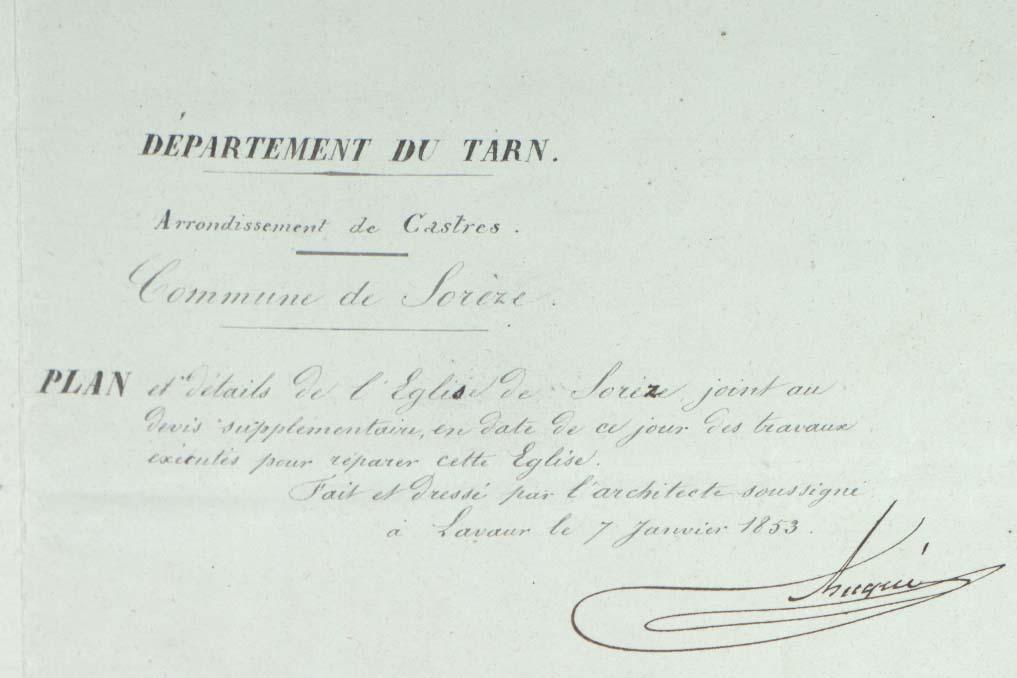 DÉPARTEMENT DU TARN.
Arrondissement de Castres.
Commune de Sorèze.
PLAN et détails de l'Eglise de Sorèze, joint au
devis supplémentaire, en date de ce jour des travaux
exécutés pour réparer cette Eglise.
Fait et dressé par l'architecte soussigné
à Lavaur le 7 Janvier 1853.